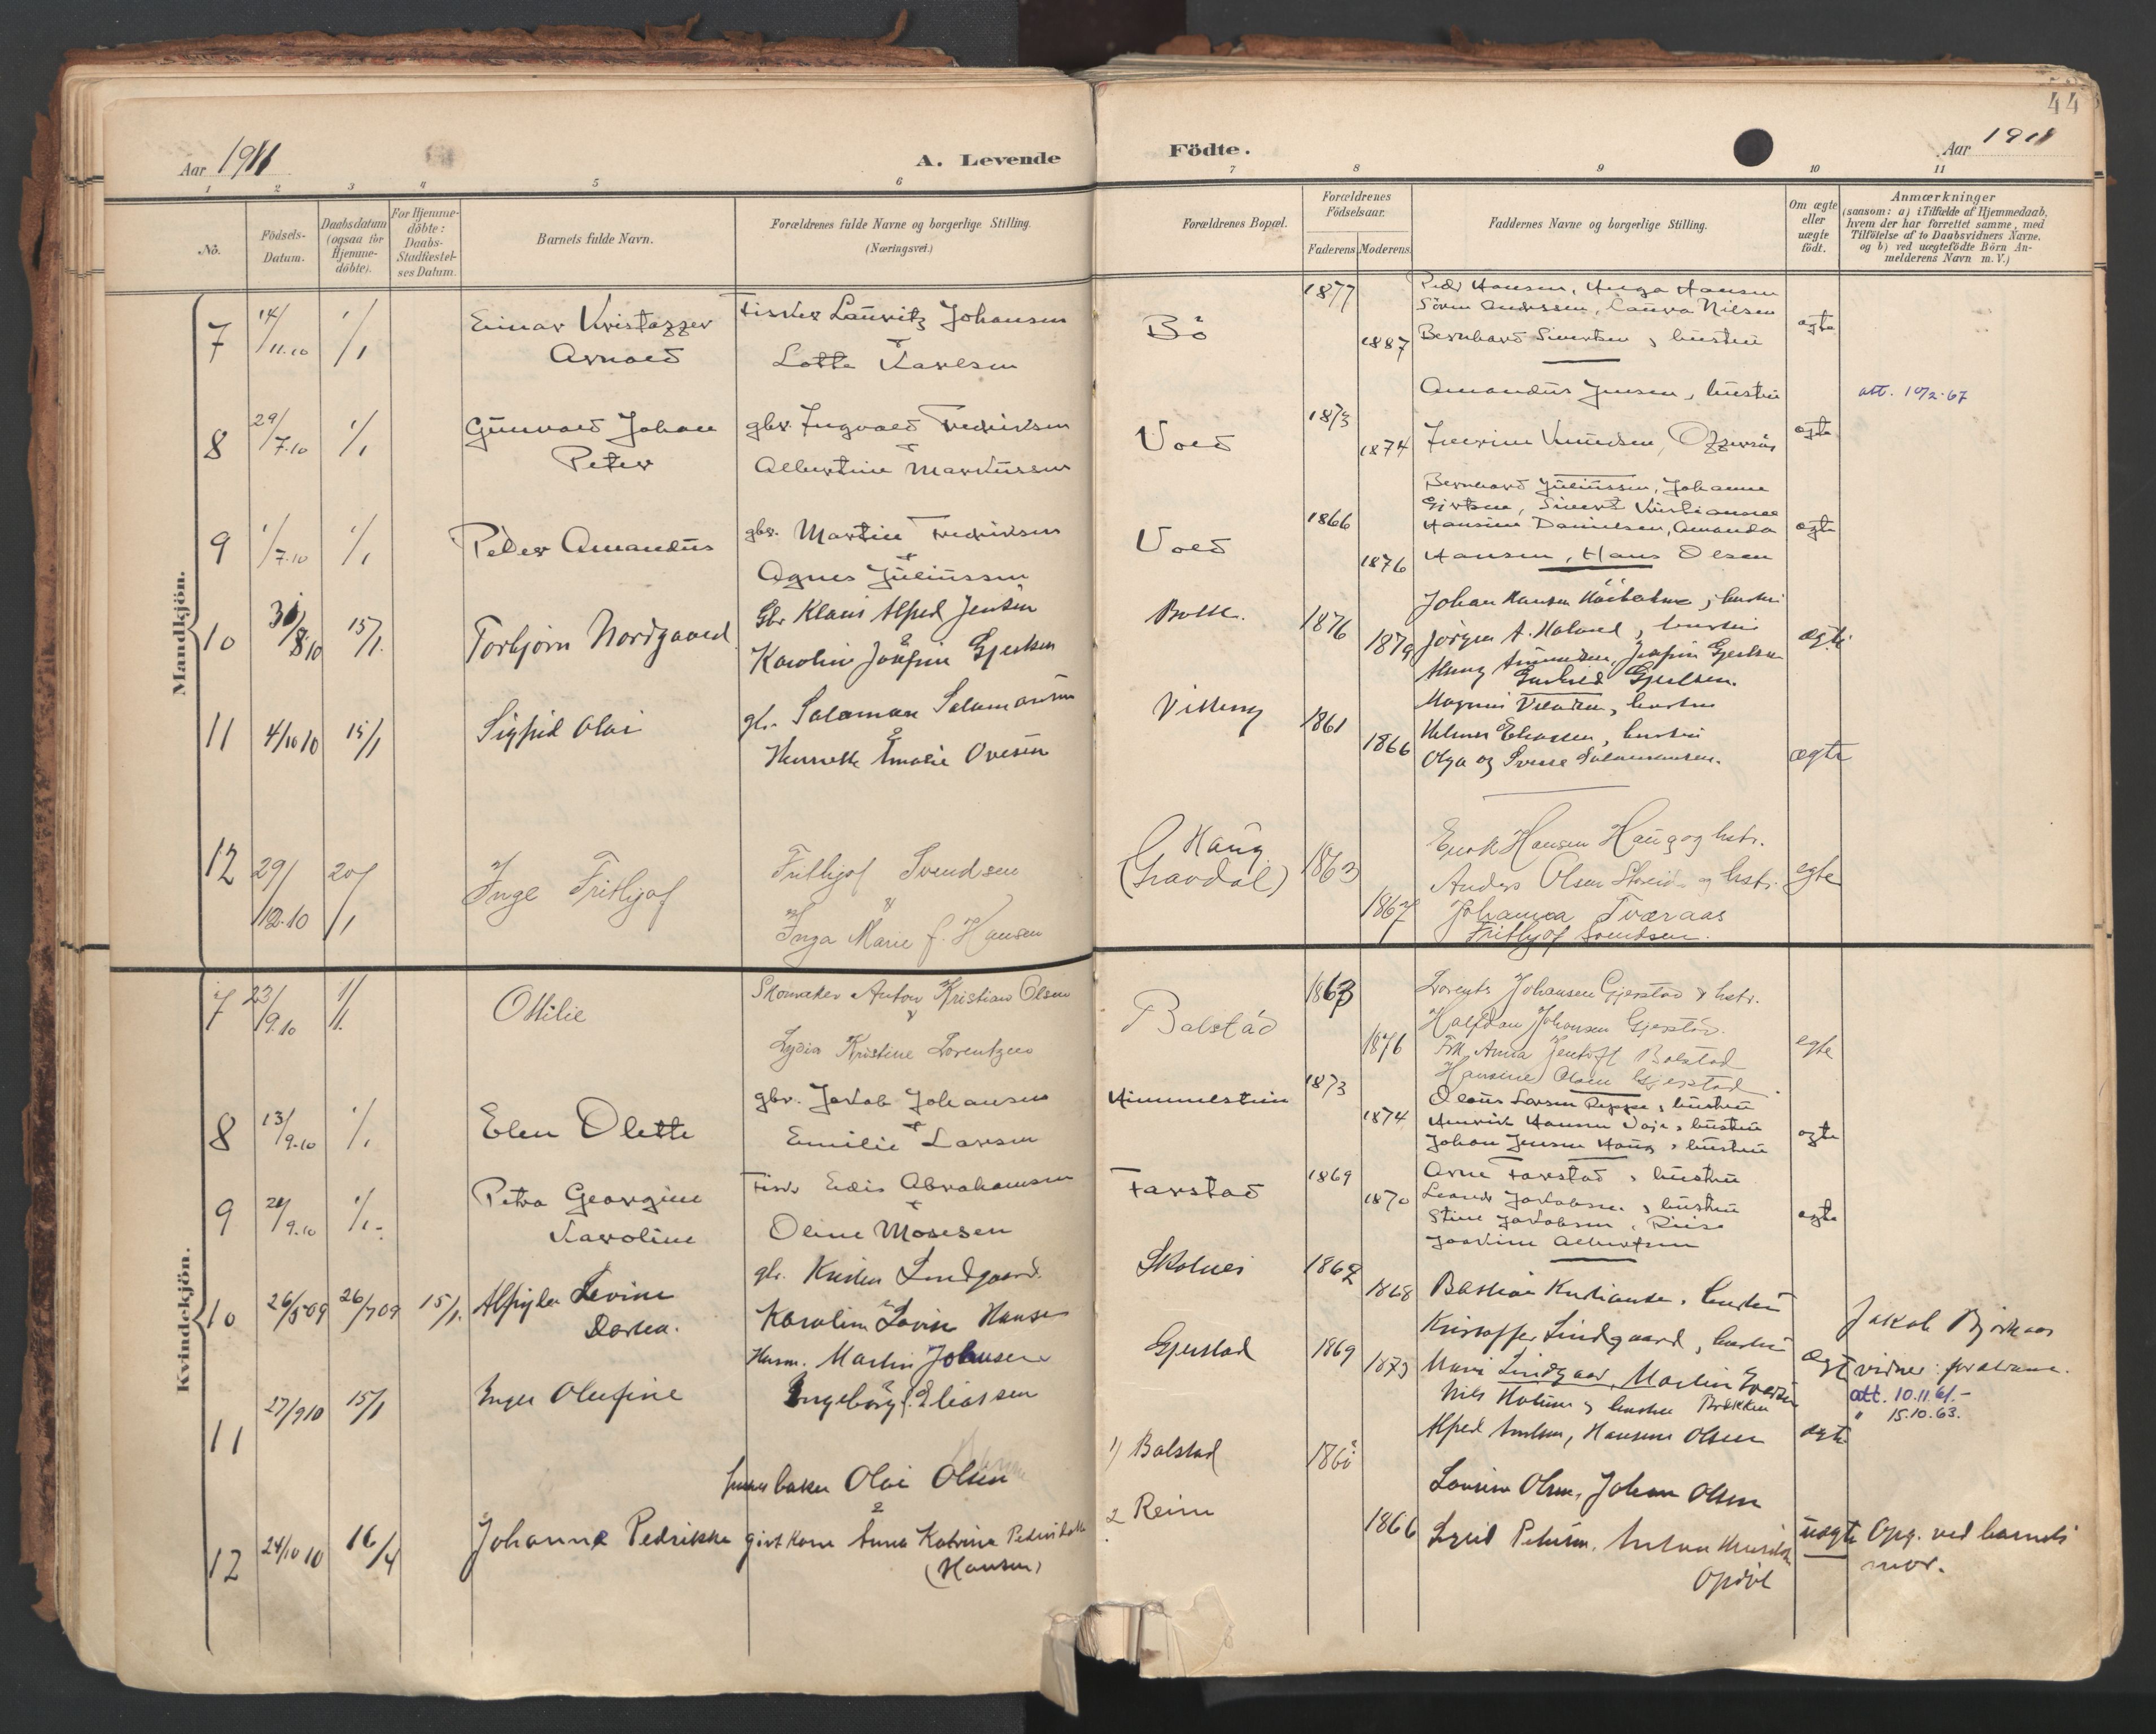 44
Aar 1911
A. Levende
Födte.
Aar 1911
1 2 3 4 5 6 7 8 9 10 11
No.
Födsels-
Datum.
Daabsdatum
(ogsaa for
Hjemme-
döbte).
For Hjemme-
döbte:
Daabs-
Stadfæstel-
ses Datum.
Barnets fulde Navn.
Forældrenes fulde Navne og borgerlige Stilling.
(Næringsvei.)
Forældrenes Bopæl.
Forældrenes
Födselsaar.
Faderens Moderens
Faddernes Navne og borgerlige Stilling.
Om ægte
eller
uægte
födt.
Anmærkninger
(saasom: a) i Tilfælde af Hjemmedaab,
hvem der har forrettet samme, med
Tilföielse af to Daabsvidners Navne,
og b) ved uægtefödte Börn An-
melderens Navn m. V.)
Mandkjön.
7 14/11.10 1/1
Einar Kristoffer
Arnold
Fisker Lauritz Johansen
+
Lotte Karlsen
Bö
1877
1887
Peder Hansen, Inga Hansen
Sören Andrssen, Laura Nilsen
Bernhard Sivertsen, hustru
ægte
8 29/7.10 1/1
Gunvald Johan
Peter
gbr. Ingvald Fredriksen
+
Albertine Markussen
Vold
1873
1874
Amandus Jensen, hustru
Knudsen, Offersöy
ægte
att. 10/2.67
9 1/7.10 1/1
Peder Amandus
gbr. Martin Fredriksen
+
Agnes Juliussen
Vold
1866
1876
Bernhard Juliussen, Johanne
Gjertsen, Sivert Kristiansen
Hansine Danielsen, Amanda
Hansen, Hans Olsen
ægte
10 31/8 10 15/1.
Torbjörn Nordgaard
Gbr Klaus Alfred Jensen
Karolin Josefin Gjertsen
Bolle.
1876
1879
Johan Hansen, hustru
Jörgen A. Haland, hustru
Josefin Gjertsen
Gjertsen.
ægte
11 4/10 10 15/1
Sigfrid Olai
gbr. Salomon Salomonsen
Amalie Ovesen
1861
1866
Magnus, hustru
Helmer Eliassen, hustru
Olga og Sverre Salomonsen.
ægte
12 29/12.10 20/1
Inge Frithjof
Frithjof Svendsen
&
Inga Marie f. Hansen
Haug
(Gravdal)
1863
1867
Enok Hansen Haug og hstr.
Anders Olsen og hstr.
Johanna Tværaas
Frithjof Svendsen.
egte
Kvindekjön.
7 23/9.10 1/1.
Ottilie
Skomaker Anton Kristian Olsen
&
Lydia Kristine Lorentzen
Balstad
1863
1876
Lorents Johansen Gjerstad & hstr.
Halfdan Johansen Gjerstad.
Frk. Anna Jentoft Balstad
Hansine Olsen Gjerstad.
egte
8 13/9.10 1/1
Elen Olette
gbr. Jakob Johansen
+
Emilie Larsen
Himmelstein
1873
1874
Olaus Larsen Reppe, hustru
Henrik Hansen Voje, hustru
Johan Jensen Haug, hustru
ægte
9 24/9.10 1/1.
Petra Georgine
Karoline
Fisk. Edis Abrahamsen
+
Oline Mosesen
Farstad
1869
1870
Arne Farstad, hustru
Leonds Jakobsen, hustru
Stine Jakobsen, Riise
Joakine Albertsen
ægte
10 26/5 09 26/7 09 15/1.
Levine
Dorthea.
gbr. Kristen Lindgaard.
Karoline Lovise Hansen
Skolnes
1862
1868
Bastian Kristiansen, hustru
Kristoffer Lindgaard, hustru
Marie Lindgaar, Martin
ægte
Jakob Björkaas
vidner: forældrene.
11 27/9 10 15/1
Inger Olufine
Husm. Martin Johnsen
Ingeborg f. Eliassen
Gjerstad
1869
1873
Nils Holum, hustru Brækken
Alfred, Hansine Olsen
ægte
att. 10.11.61.-
" 15.10.63.
12 24/10 10 16/4
Johanna Pedrikke
baker Olai Olsen
gift kone Anna Katrina
(Hansen)
1) Balstad
2 Reine
1866
Lovise Olsen, Johan Olsen
Petersen, Anton
Opdöl
uægte
Opg. ved barnets
mor.